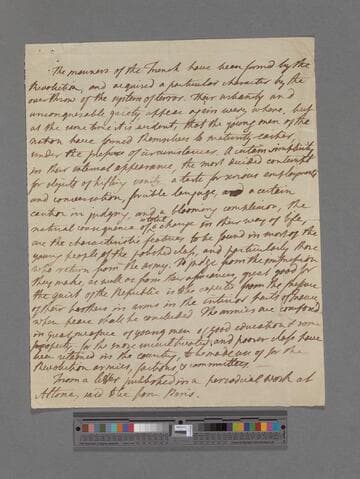 The manners of the French have been formed by the
Revolution, and acquired a particular character by the
overthrow of the system of terror. Their urbanity and
unconquerable gaiety appear again every where, but
at the same time it is evident, that the young men of the
nation have formed themselves to maturity earlier,
under the pressure of circumstances. A certain simplicity
in their external appearance, the most decided contempt
for objects of trifling vanity, a taste for serious employments
and conversation, forcible language, and a certain
caution in judging, and a blooming complexion, the
natural consequence of the change in their way of life,
are the characteristic features to be found in most of the
young people of the polished class, and particularly those
who return from the army. To judge from the impression
they make, as well as from their assurances, great good for
the quiet of the Republic is to be expected from the presence
of their brothers in arms in the interior parts of France,
when peace shall be concluded. The armies are composed
in great measure of young men of good education & some
property, for the more uncultivated and poorer class have
been retained in the country, to be made use of for the
Revolution armies, factions & committees.
From a letter published in a periodical work at
Altona, said to be from Paris.